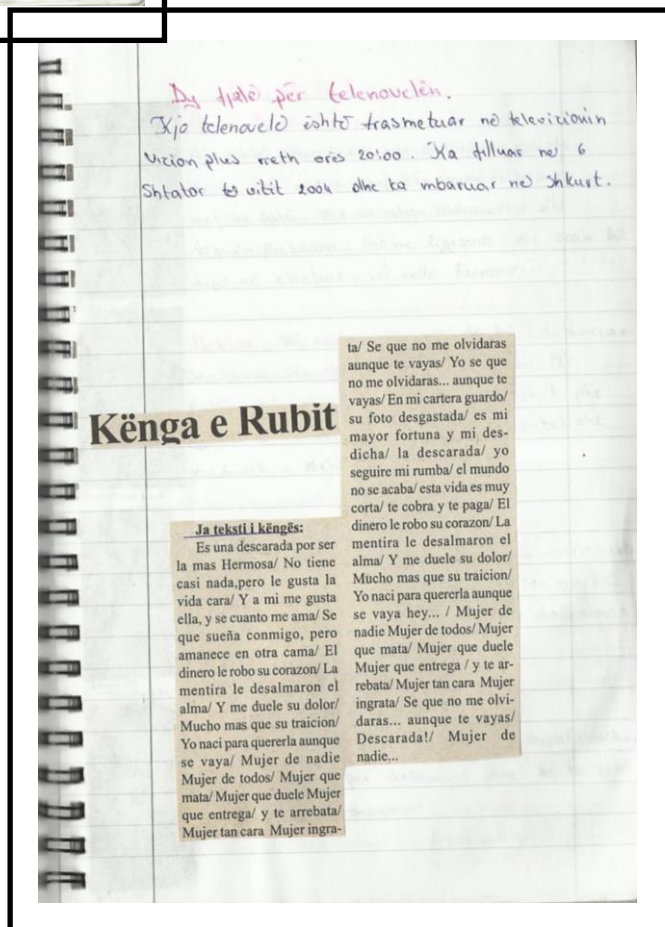 Dy fjalë për telenovelën.
Kjo telenovelë është trasmetuar në televizionin
Vizion plus rreth orës 20:00. Ka filluar në 6
Shtator të vitit 2004 dhe ka mbaruar në Shkurt.
Kënga e Rubit
Ja teksti i këngës:
Es una descarada por ser
la mas Hermosa/ No tiene
casi nada,pero le gusta la
vida cara/ Y a mi me gusta
ella, y se cuanto me ama/ Se
que sueña conmigo, pero
amanece en otra cama/ El
dinero le robo su corazon/ La
mentira le desalmaron el
alma/ Y me duele su dolor/
Mucho mas que su traicion/
Yo naci para quererla aunque
se vaya/ Mujer de nadie
Mujer de todos/ Mujer que
mata/ Mujer que duele Mujer
que entrega/ y te arrebata/
Mujer tan cara Mujer ingra-
ta/ Se que no me olvidaras
aunque te vayas/ Yo se que
no me olvidaras... aunque te
vayas/ En mi cartera guardo/
su foto desgastada/ es mi
mayor fortuna y mi des-
dicha/ la descarada/ yo
seguire mi rumba/ el mundo
no se acaba/ esta vida es muy
corta/ te cobra y te paga/ El
dinero le robo su corazon/ La
mentira le desalmaron el
alma/ Y me duele su dolor/
Mucho mas que su traicion/
Yo naci para quererla aunque
se vaya hey... / Mujer de
nadie Mujer de todos/ Mujer
que mata/ Mujer que duele
Mujer que entrega / y te ar-
rebata/ Mujer tan cara Mujer
ingrata/ Se que no me olvi-
daras... aunque te vayas/
Descarada!/ Mujer de
nadie...